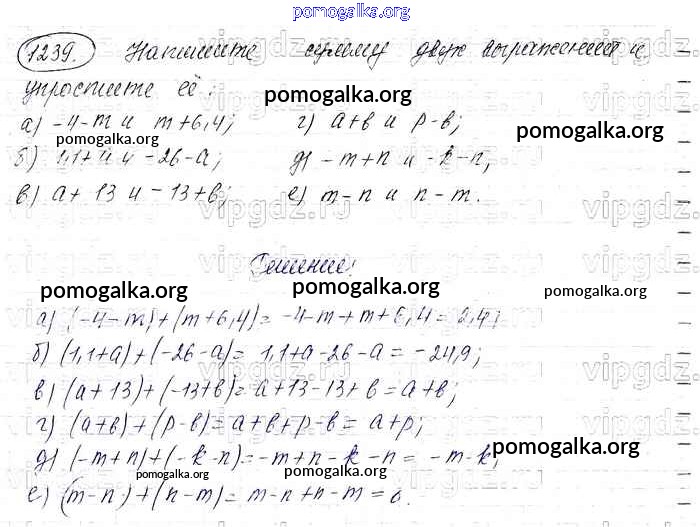 pomogalka.org
1239. Напишите сумму двух выражений и
упростите её:
pomogalka.org
а) -4-m и m+6,4; г) a+b и p-b;
pomogalka.org pomogalka.org
б) 1,1+a и -26-a; д) -m+n и -k-n;
в) a+13 и -13+b; е) m-n и n-m.
vipgdz.ru
Решение:
pomogalka.org pomogalka.org pomogalka.org
а) (-4-m)+(m+6,4)= -4-m+m+6,4=2,4;
б) (1,1+a)+(-26-a)= 1,1+a-26-a=-24,9;
в) (a+13)+(-13+b)=a+13-13+b=a+b;
г) (a+b)+(p-b)=a+b+p-b=a+p;
д) (-m+n)+(-k-n)=-m+n-k-n=-m-k;
pomogalka.org
pomogalka.org pomogalka.org
е) (m-n)+(n-m)=m-n+n-m=0.
pomogalka.org